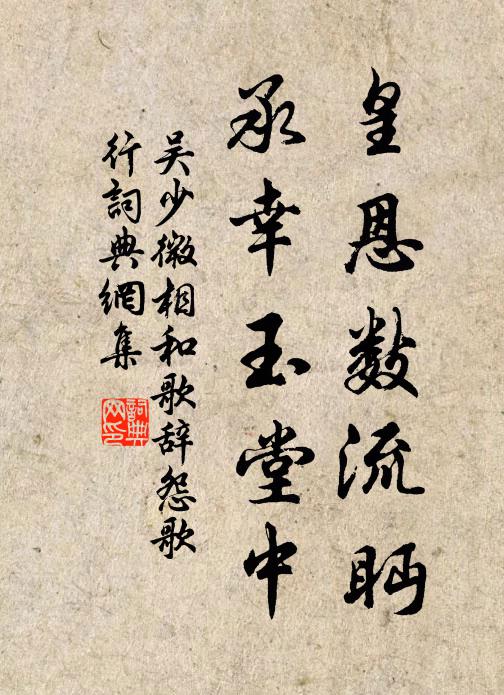 皇恩数流眄
承幸玉堂中
吴少微相和歌辞怨歌
行词典网集
词典网印